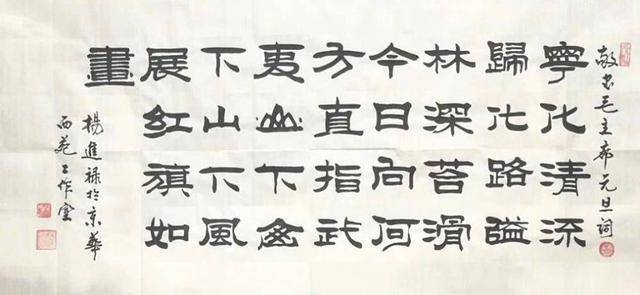 敬书毛主席元旦詞
寧化清流
歸化路隘
林深苔滑
今日向何
方直指武
夷山下山
下山下風
展紅旗如
畫
楊進禄於京華
西苑工作室